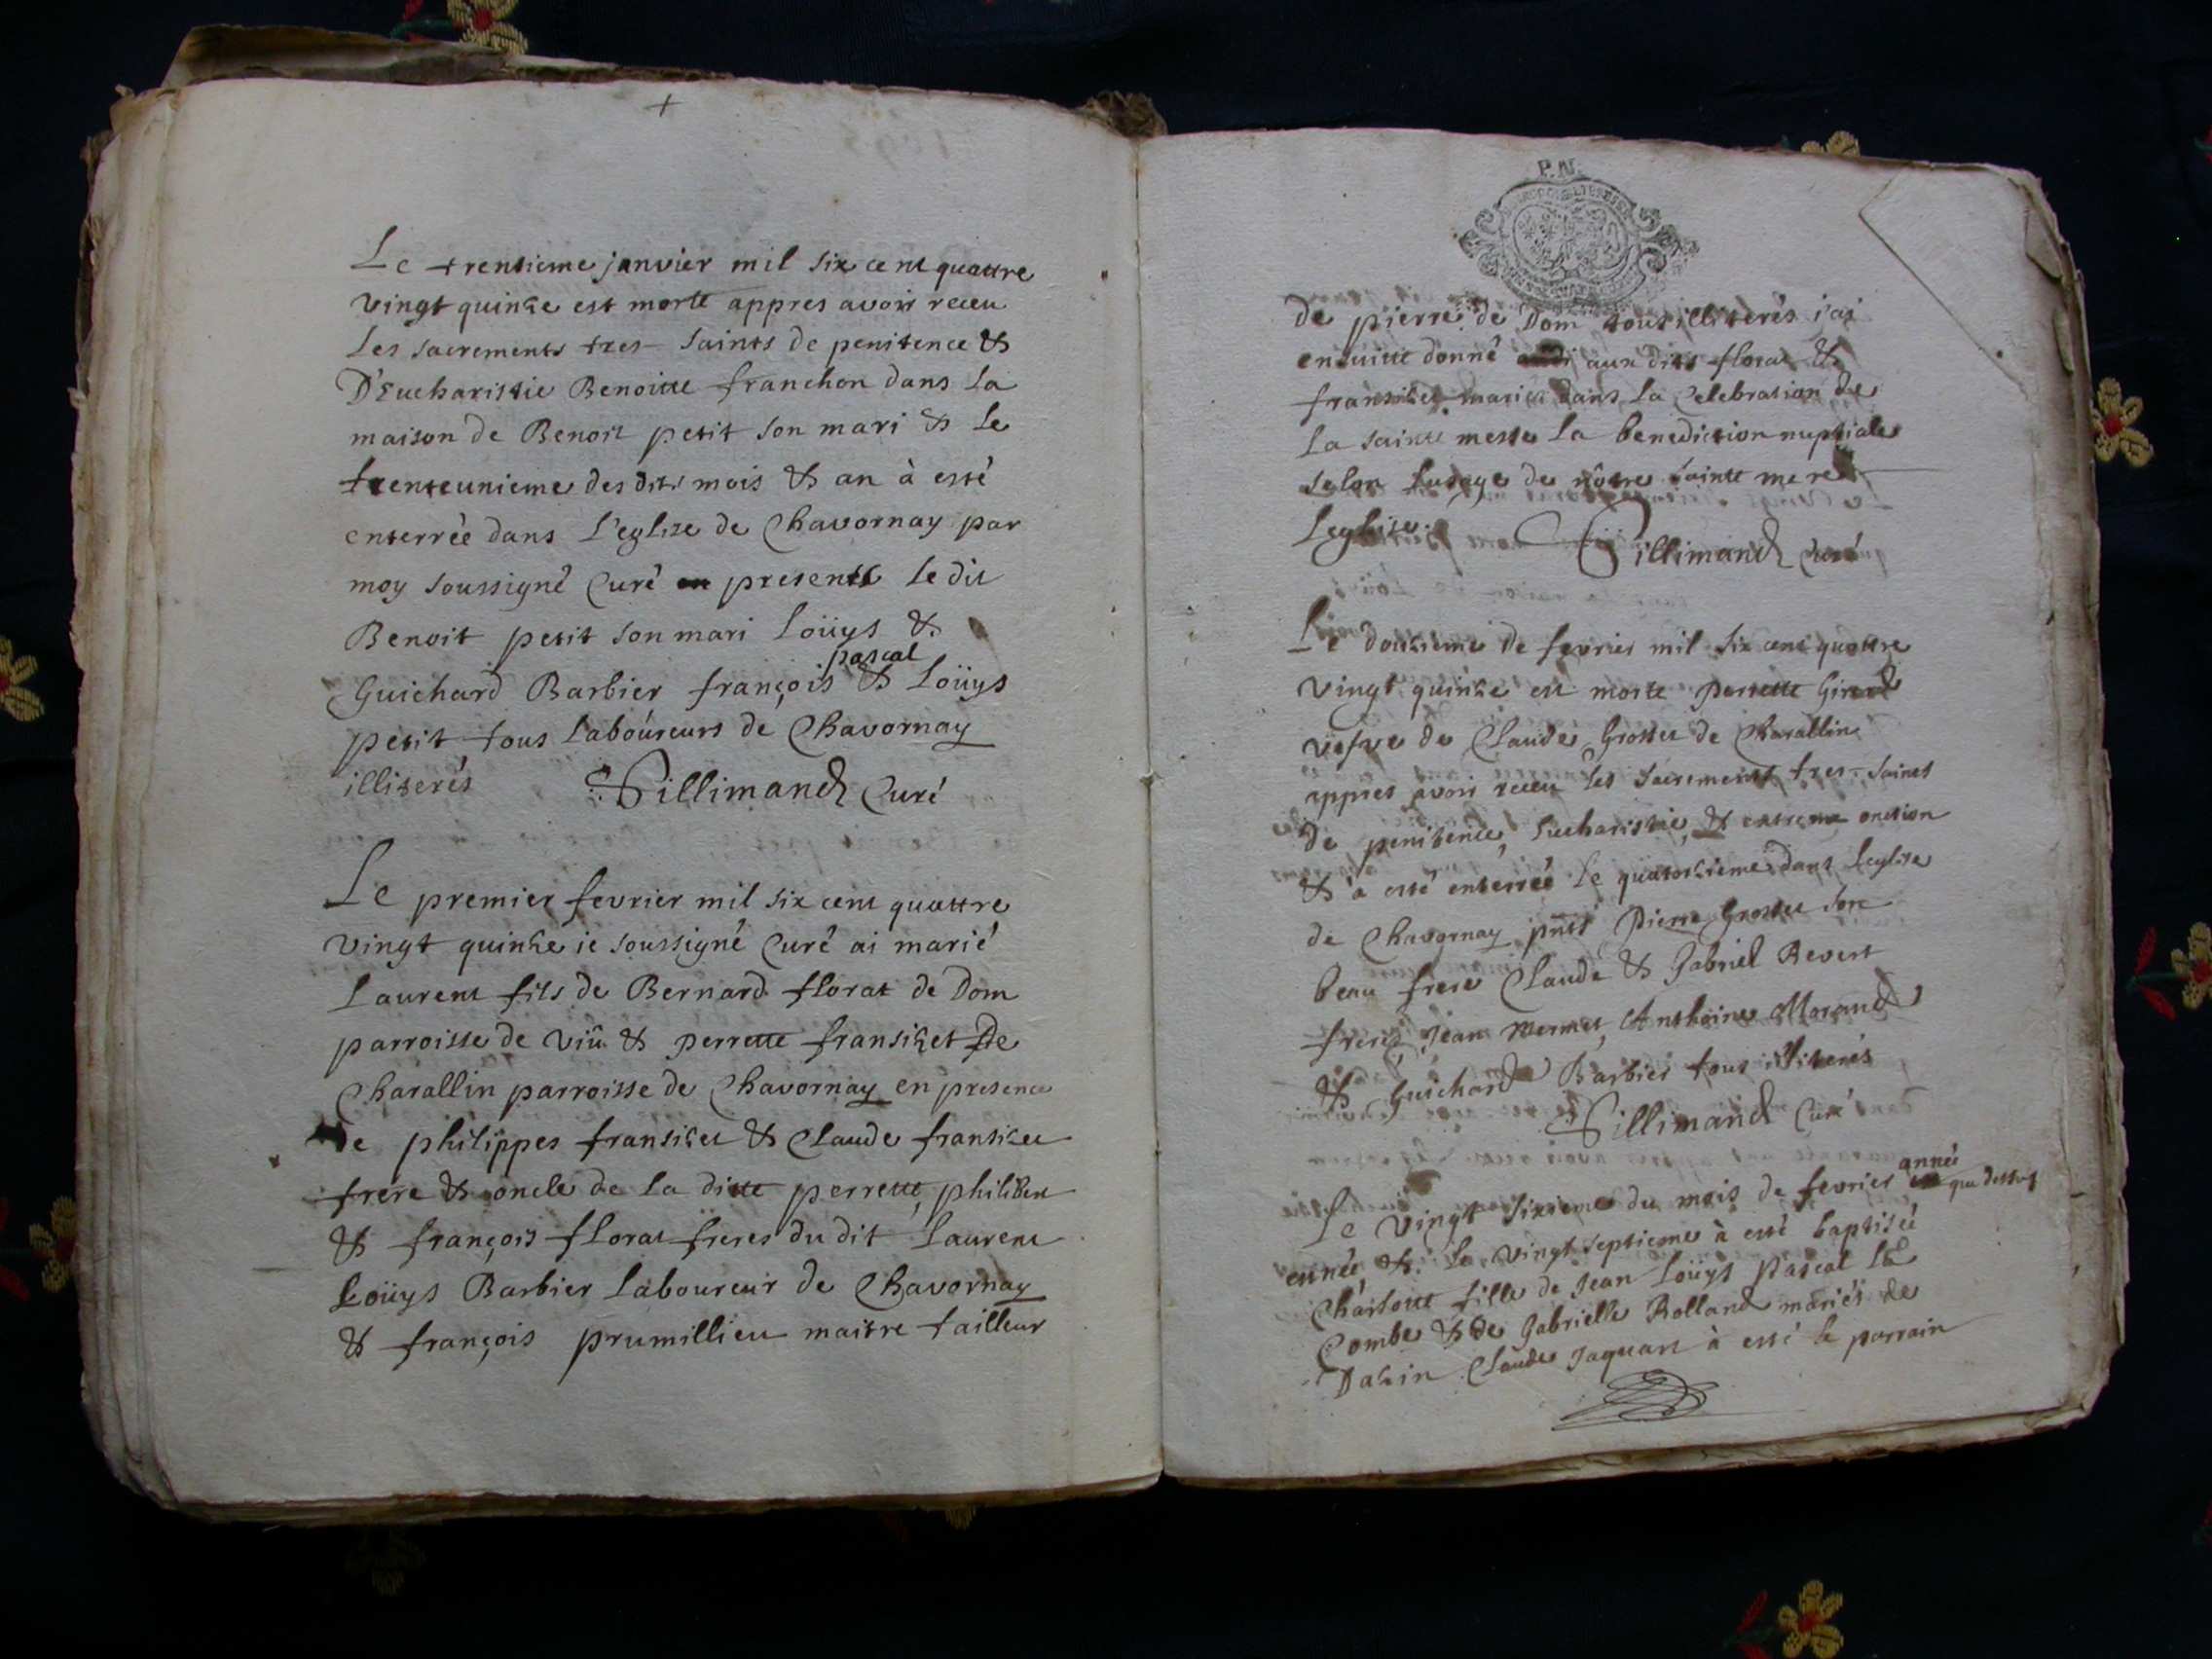 Le trentieme janvier mil six cent quattre
vingt quinze est morte appres avoir receu
les sacrements tres-saints de penitence &
D'Eucharistie Benoitte franchon dans la
maison de Benoit petit son mari & le
trenteunieme des dits mois & an à esté
enterrée dans l'eglise de Chavornay par
moy soussigné Curé presents le dit
Benoit petit son mari Loüys &
pascal
Guichard Barbier françois & Loüys
petit tous laboureurs de Chavornay
illiterés Sillimand Curé
Le premier fevrier mil six cent quattre
vingt quinze ie soussigné Curé ai marié
Laurent fils de Bernard florat de Dom
parroisse de viû & perrette fransizet de
Charallin parroisse de Chavornay en presence
de philippes fransizet & Claude fransizet
frere & oncle de la ditte perrette, philibert
& françois florat freres du dit Laurent
Loüys Barbier laboureur de Chavornay
& françois prumillieu maitre tailleur
P. N.
de pierre de Dom tous illiterés j'ai
ensuitte donné aux dits florat &
fransizet mariés dans la Celebration de
la sainte messe la benediction nuptiale
selon lusage de nôtre sainte mere
Leglise. Sillimand Curé
Le douzieme de fevrier mil six cent quattre
vingt quinze est morte perrette Girerd
vefve de Claude Grosset de Charallin
appres avoir receu les sacrements tres-saints
de penitence, Eucharistie, & extreme onction
& a esté enterrée le quatorzieme dans leglise
de Chavornay pnts Pierre Grosset son
beau frere Claude & Gabriel Revert
freres, Jean mermet, Anthoine Morand
& Guichard Barbier tous illiterés
Sillimand Curé
année
Le vingt sixieme du mois de fevrier que dessus
est née & le vingt septieme à esté baptisée
Charlotte fille de Jean Loüys Pascal la
Combe & de Gabrielle Rolland mariés de
Dazin Claude Jaquart à esté le parrain